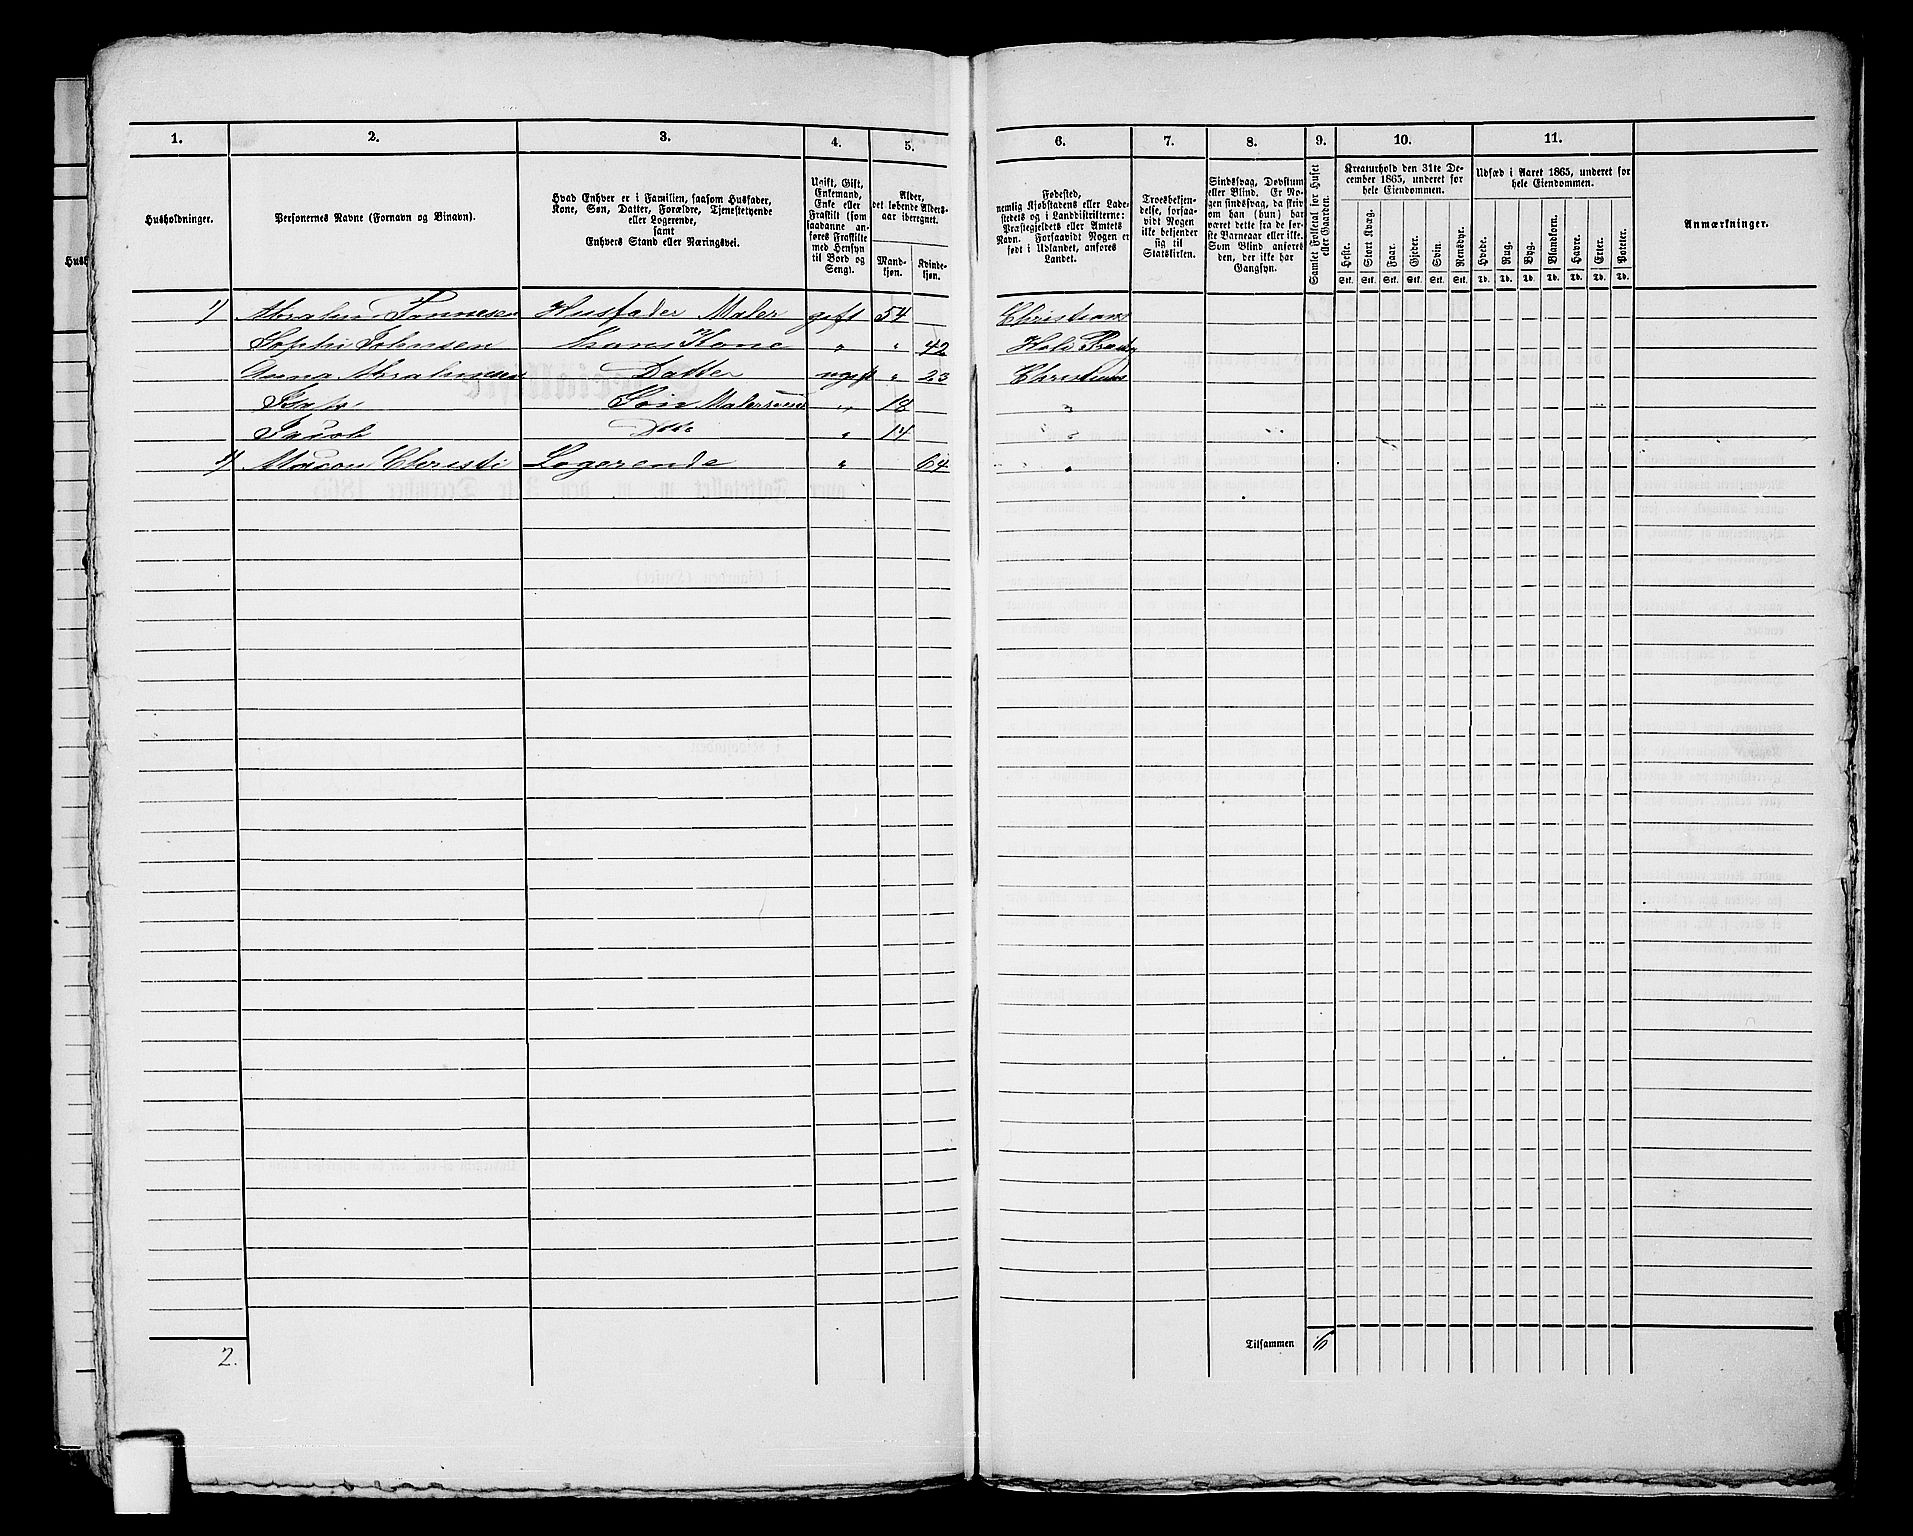 1. 2. 3. 4. 5. 6. 7. 8. 9. 10. 11.
Husholdninger.
Personernes Navne (Fornavn og Binavn).
Hvad Enhver er i Familien, saasom Husfader,
Kone, Søn, Datter, Forældre, Tjenestetyende
eller Logerende,
samt
Enhvers Stand eller Næringsvei.
Ugift, Gift,
Enkemand,
Enke eller
Fraskilt (som
saadanne an-
føres Fraskilte
med Hensyn
til Bord og
Seng).
Alder,
det løbende Alders-
aar iberegnet.
Mand-
kjøn.
Kvinde-
kjøn.
Fødested,
nemlig Kjøbstadens eller Lade-
stedets og i Landdistrikterne:
Præstegjeldets eller Amtets
Navn. Forsaavidt Nogen er
født i Udlandet, anføres
Landet.
Troesbekjen-
delse, forsaa-
vidt Nogen
ikke bekjender
sig til
Statskirken.
Sindssvag, Døvstum
eller Blind. Er No-
gen sindssvag, da skriv
om han (hun) har
været dette fra de før-
ste Barneaar eller ikke.
Som Blind anføres
den, der ikke har
Gangsyn.
Samlet Folketal for Huset
eller Gaarden.
Kreaturhold den 31te De-
cember 1865, underet for
hele Eiendommen.
Heste. Stort Kvæg. Faar. Gjeder. Svin. Rensdyr.
Stk. Stk. Stk. Stk. Stk. Stk.
Udsæd i Aaret 1865, underet for
hele Eiendommen.
Hvede. Rug. Byg. Blandkorn. Havre. Erter. Poteter.
Td. Td. Td. Td. Td. Td. Td.
Anmærkninger.
1/ Abraham Tønnesen Husfader Maler gift 54 Christians
Sophi Johnsen Hans Kone " " 42
Anna Abrahamsen Datter ugift " 23 Christians
Søn Malersvend " 18 "
Jacob Do " 14 "
Christi Logerende " 64 "
2.
Tilsammen 6